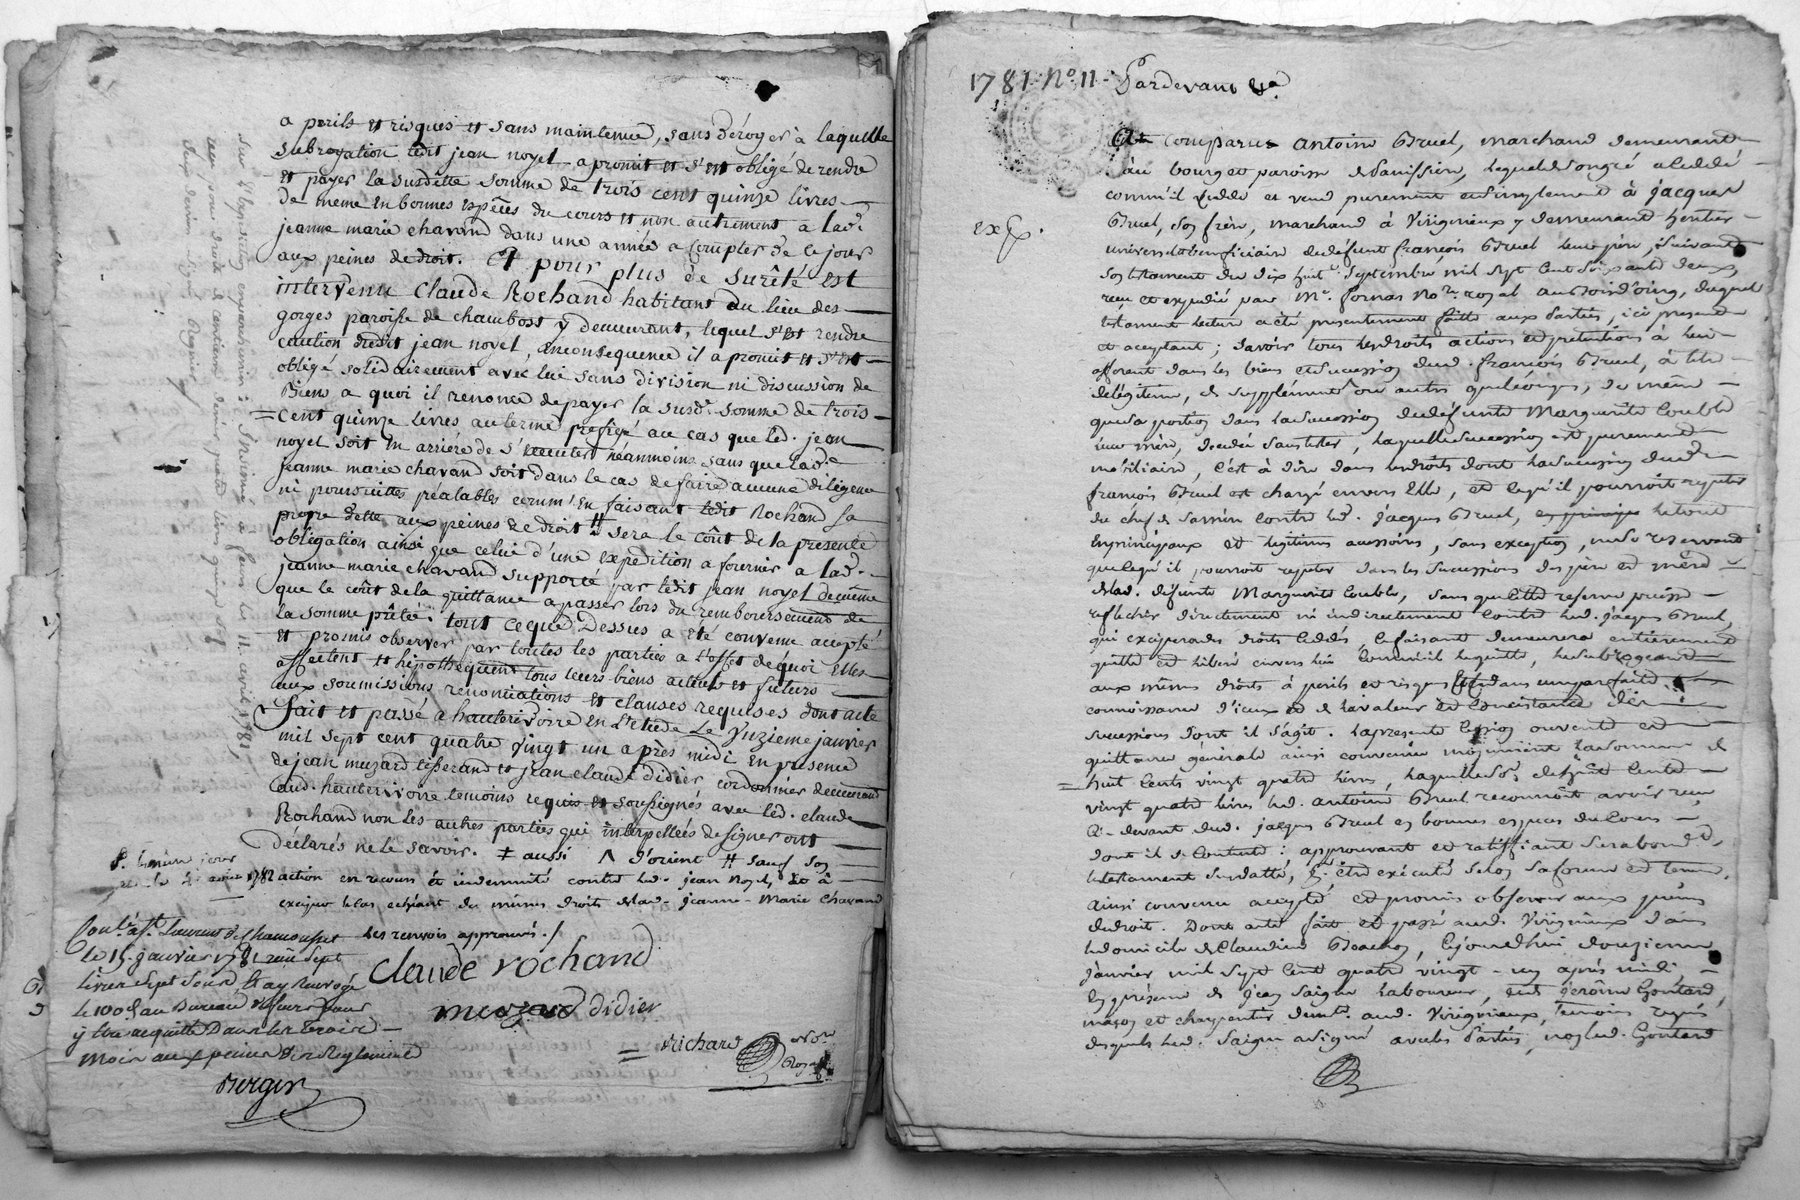 a perils et risques et sans maintenue, sans déroger à laquelle
subrogation ledit jean noyel a promit et s'est obligé de rendre
et payer la susditte somme de trois cent quinze livres
de meme en bonnes espêces du cours et non autrement a lad.e
jeanne marie chavand dans une année a compter de ce jour
aux peines de droit. Et pour plus de sureté est
intervenu Claude Rochand habitant du lieu des
gorges paroisse de chambost y demeurant, lequel s'est rendu
caution dudit jean noyel, en consequence il a promit et s'est
obligé solidairement avec lui sans division ni discussion de
Biens a quoi il renonce de payer la susd.e somme de trois
cent quinze livres au terme prefigé au cas que led. jean
noyel soit en arriére de s'executer néanmoins sans que lad.e
jeanne marie chavand soit dans le cas de faire aucune diligence
ni poursuittes préalables comm'en faisant ledit Rochand sa
propre dette aux peines de droit # sera le coût de la presente
obligation ainsi que celui d'une expedition a fournir a lad.
jeanne marie chavand supporté par ledit jean noyel de même
que le coût de la quittance a passer lors du remboursement de
la somme prêtée. tout ceque Dessus a eté convenu accepté
et promis observer par toutes les parties a l'effet de quoi Elles
affectent et hipothequent tous leurs biens actuels et futurs
aux soumissions renonciations et clauses requises dont acte
fait et passé a hauterivoire en l'etude Le onzieme janvier
mil sept cent quatre vingt un après midi En presence
de jean muzard tisserand et jean claude didier cordonnier demeurant
aud. hauterivoire temoins requis et soussignés avec led. claude
Rochand non les autres parties qui interpellées de signer ont
déclarés ne le savoir. ‡ aussi Λ d'orient # sauf son
action en recours et indemnité contre led. jean Noyel, et à
exciper le cas echéant du mêmes droits de lad. jeanne-Marie Chavand
les renvois approuvés ./
Claude rochand
muzard didier
Richard No.re Royal
Con.lé à S.t Laurent de Chamousset
le 15. janvier 1781 reçu sept
livres sept sous
y être acquitté Dans les trois
mois aux peines du Reglement
Berger
1781. No. 11. Pardevant &.a
exp.
Est comparu antoine Bruel, marchand demeurant
au bourg et paroisse de Savissieu, lequel de son gré a cédé
comm'il cedde et vend purement et simplement à jacques
Bruel, son frère, marchand à Virigneux y demeurant heritier
universel et beneficiaire de defunt françois Bruel leur père, suivant
son testament du dix huit septembre mil sept cent soixante deux,
reçu et expédié par M.e fornas No.re royal au Bois d'oing, duquel
testament lecture a été presentement faitte aux Parties, ici present
et acceptant; savoir tous les droits actions et pretentions à lui
afferent dans les biens et succession dud. françois Bruel, à titre
de légitime, de supplément ou autres quelconques, de même
que sa portion dans la succession de défunte Marguerite Coublé
leur mère, decedée sans tester, laquelle succession est purement
mobiliaire, c'est à dire dans les droits dont la succession dud.
françois Bruel est chargé envers Elle, et ce qu'il pourroit repeter
du chef de sa mère contre led. jacques Bruel, le tout
En principaux et legitimes accessoires, sans exception, ni se reservant
que ce qu'il pourroit repeter dans les successions des père et mère
de lad. défunte Marguerite Coublé, sans que cette reserve puisse
reflechir directement ni indirectement contre led. jacques Bruel,
qui au moyen des droits cédés, ce faisant demeurera entierement
quitte et liberé envers lui comm'il le quitte, le subrogeant
aux mêmes droits à perils et risques étant dans une parfaite
connoissance d'iceux et de la valeur et consistance des
successions dont il s'agit. la presente cession ouverte et
quittance générale ainsi convenue moyennant la somme de
huit cents vingt quatre livres, laquelle somme de huit cents
vingt quatre livres led. antoine Bruel reconnoit avoir reçu
ci-devant dud. jacques Bruel en bonnes especes du cours
dont il se contente: approuvant et ratiffiant
le testament susdatté, p.r être exécuté selon sa forme et teneur,
ainsi convenu accepté et promis observer aux peines
de droit. Dont acte fait et passé aud. Virigneux dans
le domicile de Claudine Beauchez, cejourd'hui douzieme
janvier mil sept cent quatre vingt-un après midi
En présence de Jean Saigne laboureur, et de Jerôme Goutard,
maçon et charpentier dem.t aud. Virigneux, temoins requis
desquels led. Saigne a signé avec les Parties, non led. Goutard